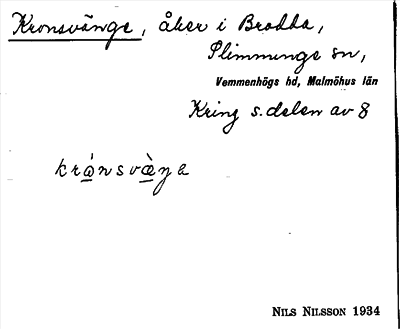 Kronsvänge, åker i Brodda,
Slimminge sn,
Vemmenhögs hd, Malmöhus län
Kring s. delen av 8
krånsvæŋa
NILS NILSSON 1934